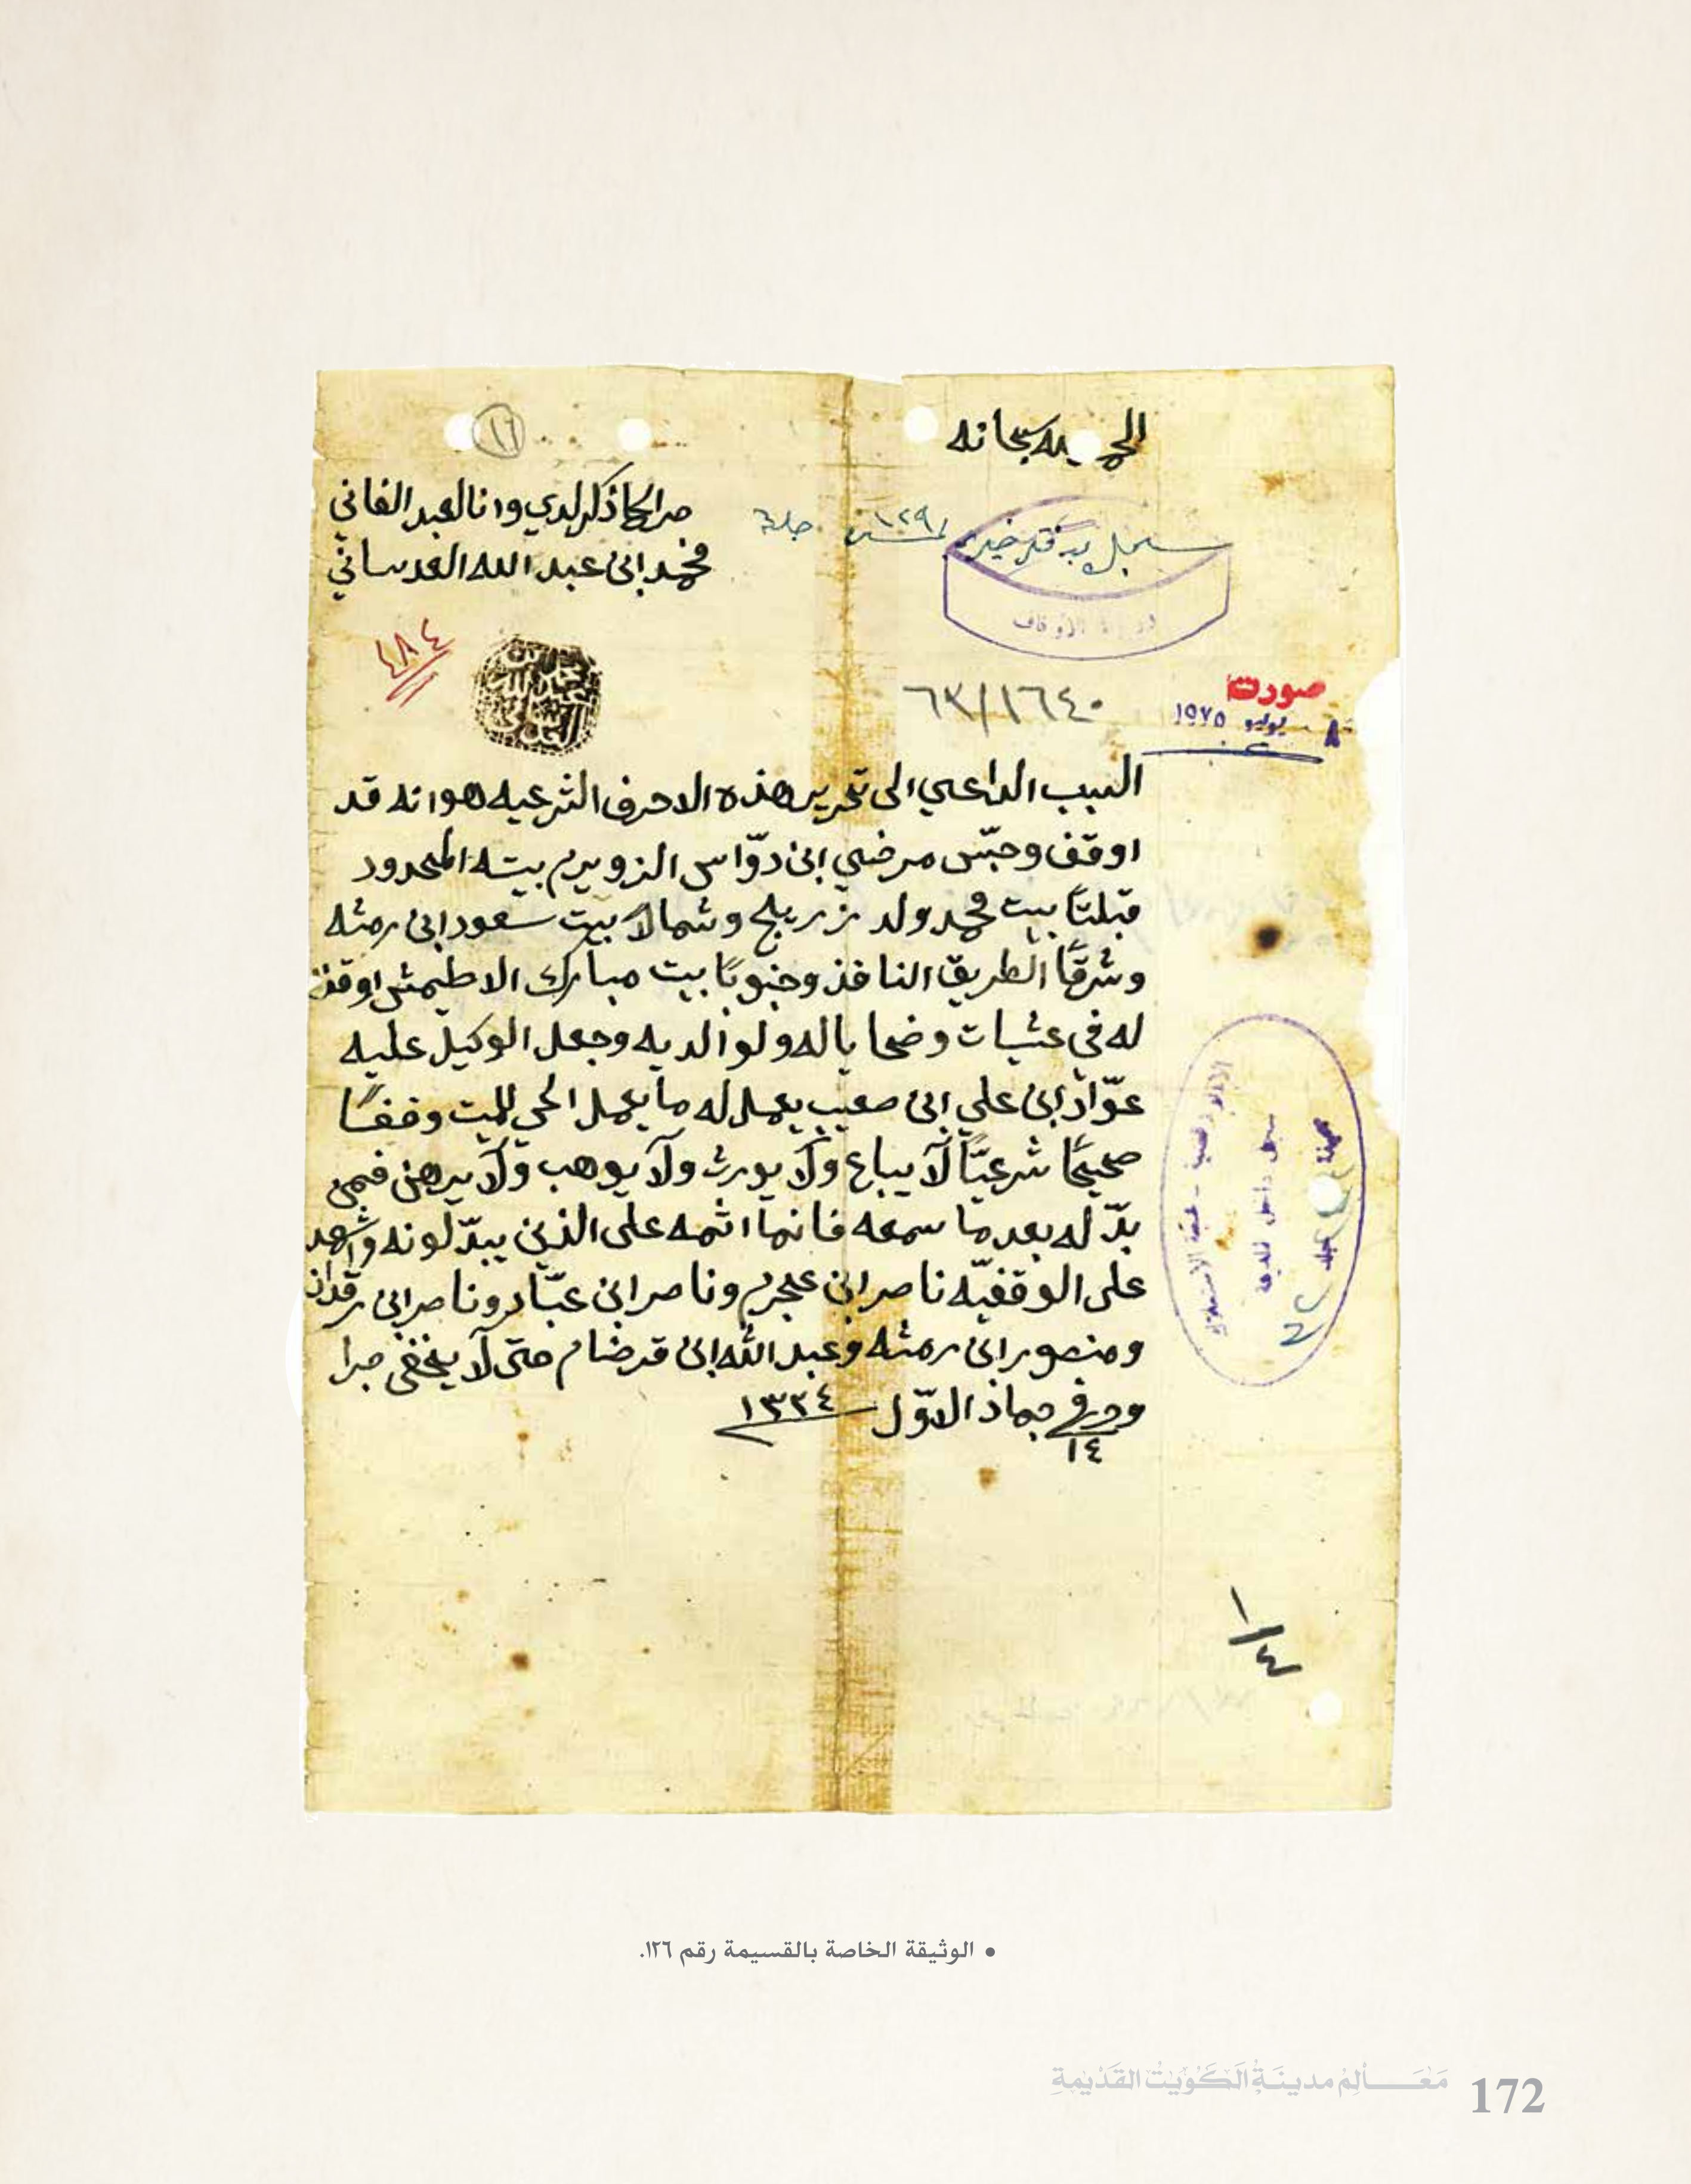 الحمد لله سبحانه
١٦
صار كما ذكر لدي وانا العبد الفاني
محمد ابن عبد الله العدساني
سجل بدفتر خيري ١٢٩
٤٨٤
١٦٤٠/٦٣
صورت
٨ يوليو ١٩٧٥
السبب الداعي الى تحرير هذه الاحرف الشرعيه هو انه قد
اوقف وحبّس مرضي ابن دوّاس الزويرم بيته المحدود
قبلتًا بيت محمد ولد زريلج وشمالاً بيت سعود ابن رمثه
وشرقًا الطريق النافذ وجنوبًا بيت مبارك الاطيمش اوقفه
له في عشيات وضحايا له ولوالديه وجعل الوكيل عليه
عوّاد ابن علي ابن صعيب يعمل له ما يعمل الحي للميت وقفًا
صحيحًا شرعيًّا لا يباع ولا يورث ولا يوهب ولا يرهن فمن
بدّله بعد ما سمعه فانما اثمه على الذين يبدّلونه واشهد
على الوقفيّه ناصر ابن عجرم وناصر ابن عبّاد وناصر ابن رقدان
ومنصور ابن رمثه وعبد الله ابن قرضام حتى لا يخفى جرا
وحرر في ١٤ جماد الاوّل ١٣٣٤
سجل داخل المدينة
صفحة
جلد
١/٤
• الوثيقة الخاصة بالقسيمة رقم ١٢٦.
مَعَـالِمُ مدينَةِ الكُوَيْت القَدْيمَةِ 172